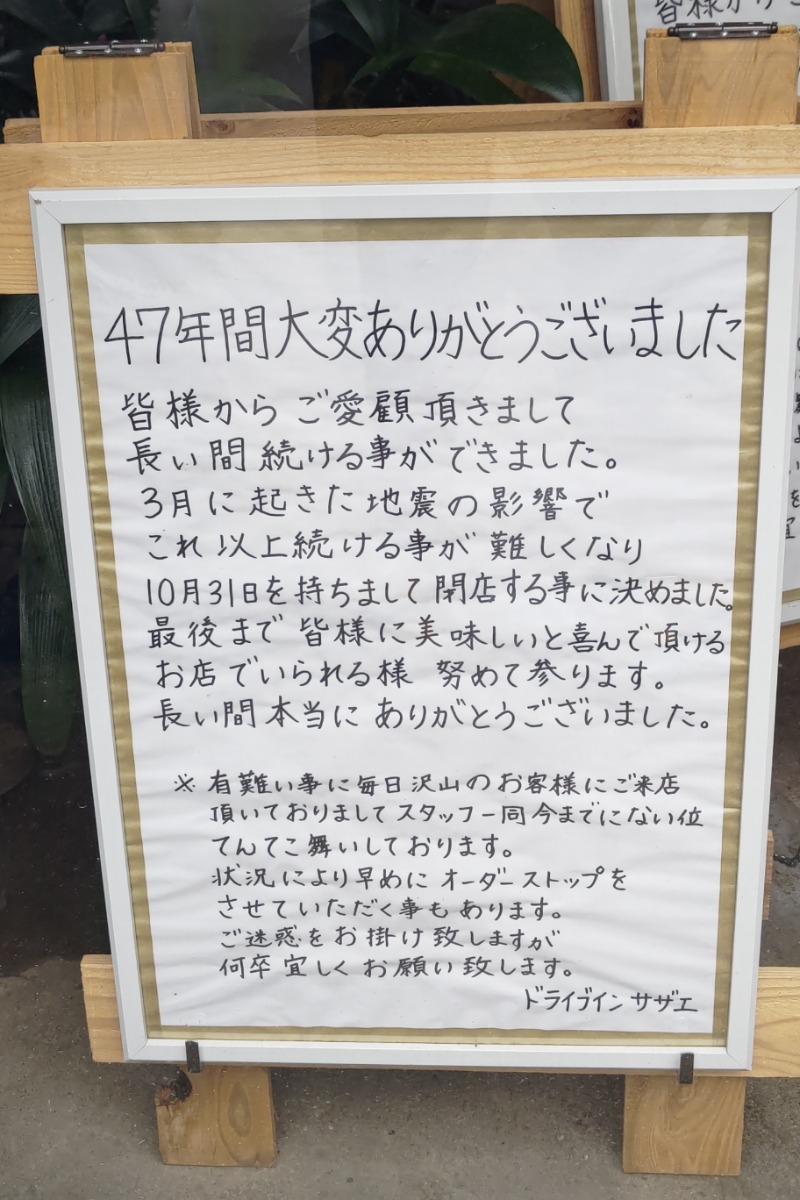 皆様から
47年間大変ありがとうございました
皆様からご愛顧頂きまして
長い間続ける事ができました。
3月に起きた地震の影響で
これ以上続ける事が難しくなり
10月31日を持ちまして閉店する事に決めました。
最後まで皆様に美味しいと喜んで頂ける
お店でいられる様 努めて参ります。
長い間本当に ありがとうございました。
※有難い事に毎日沢山のお客様にご来店
頂いておりましてスタッフ一同今までにない位
てんてこ舞いしております。
状況により早めにオーダーストップを
させていただく事もあります。
ご迷惑をお掛け致しますが
何卒宜しくお願い致します。
ドライブインサザエ